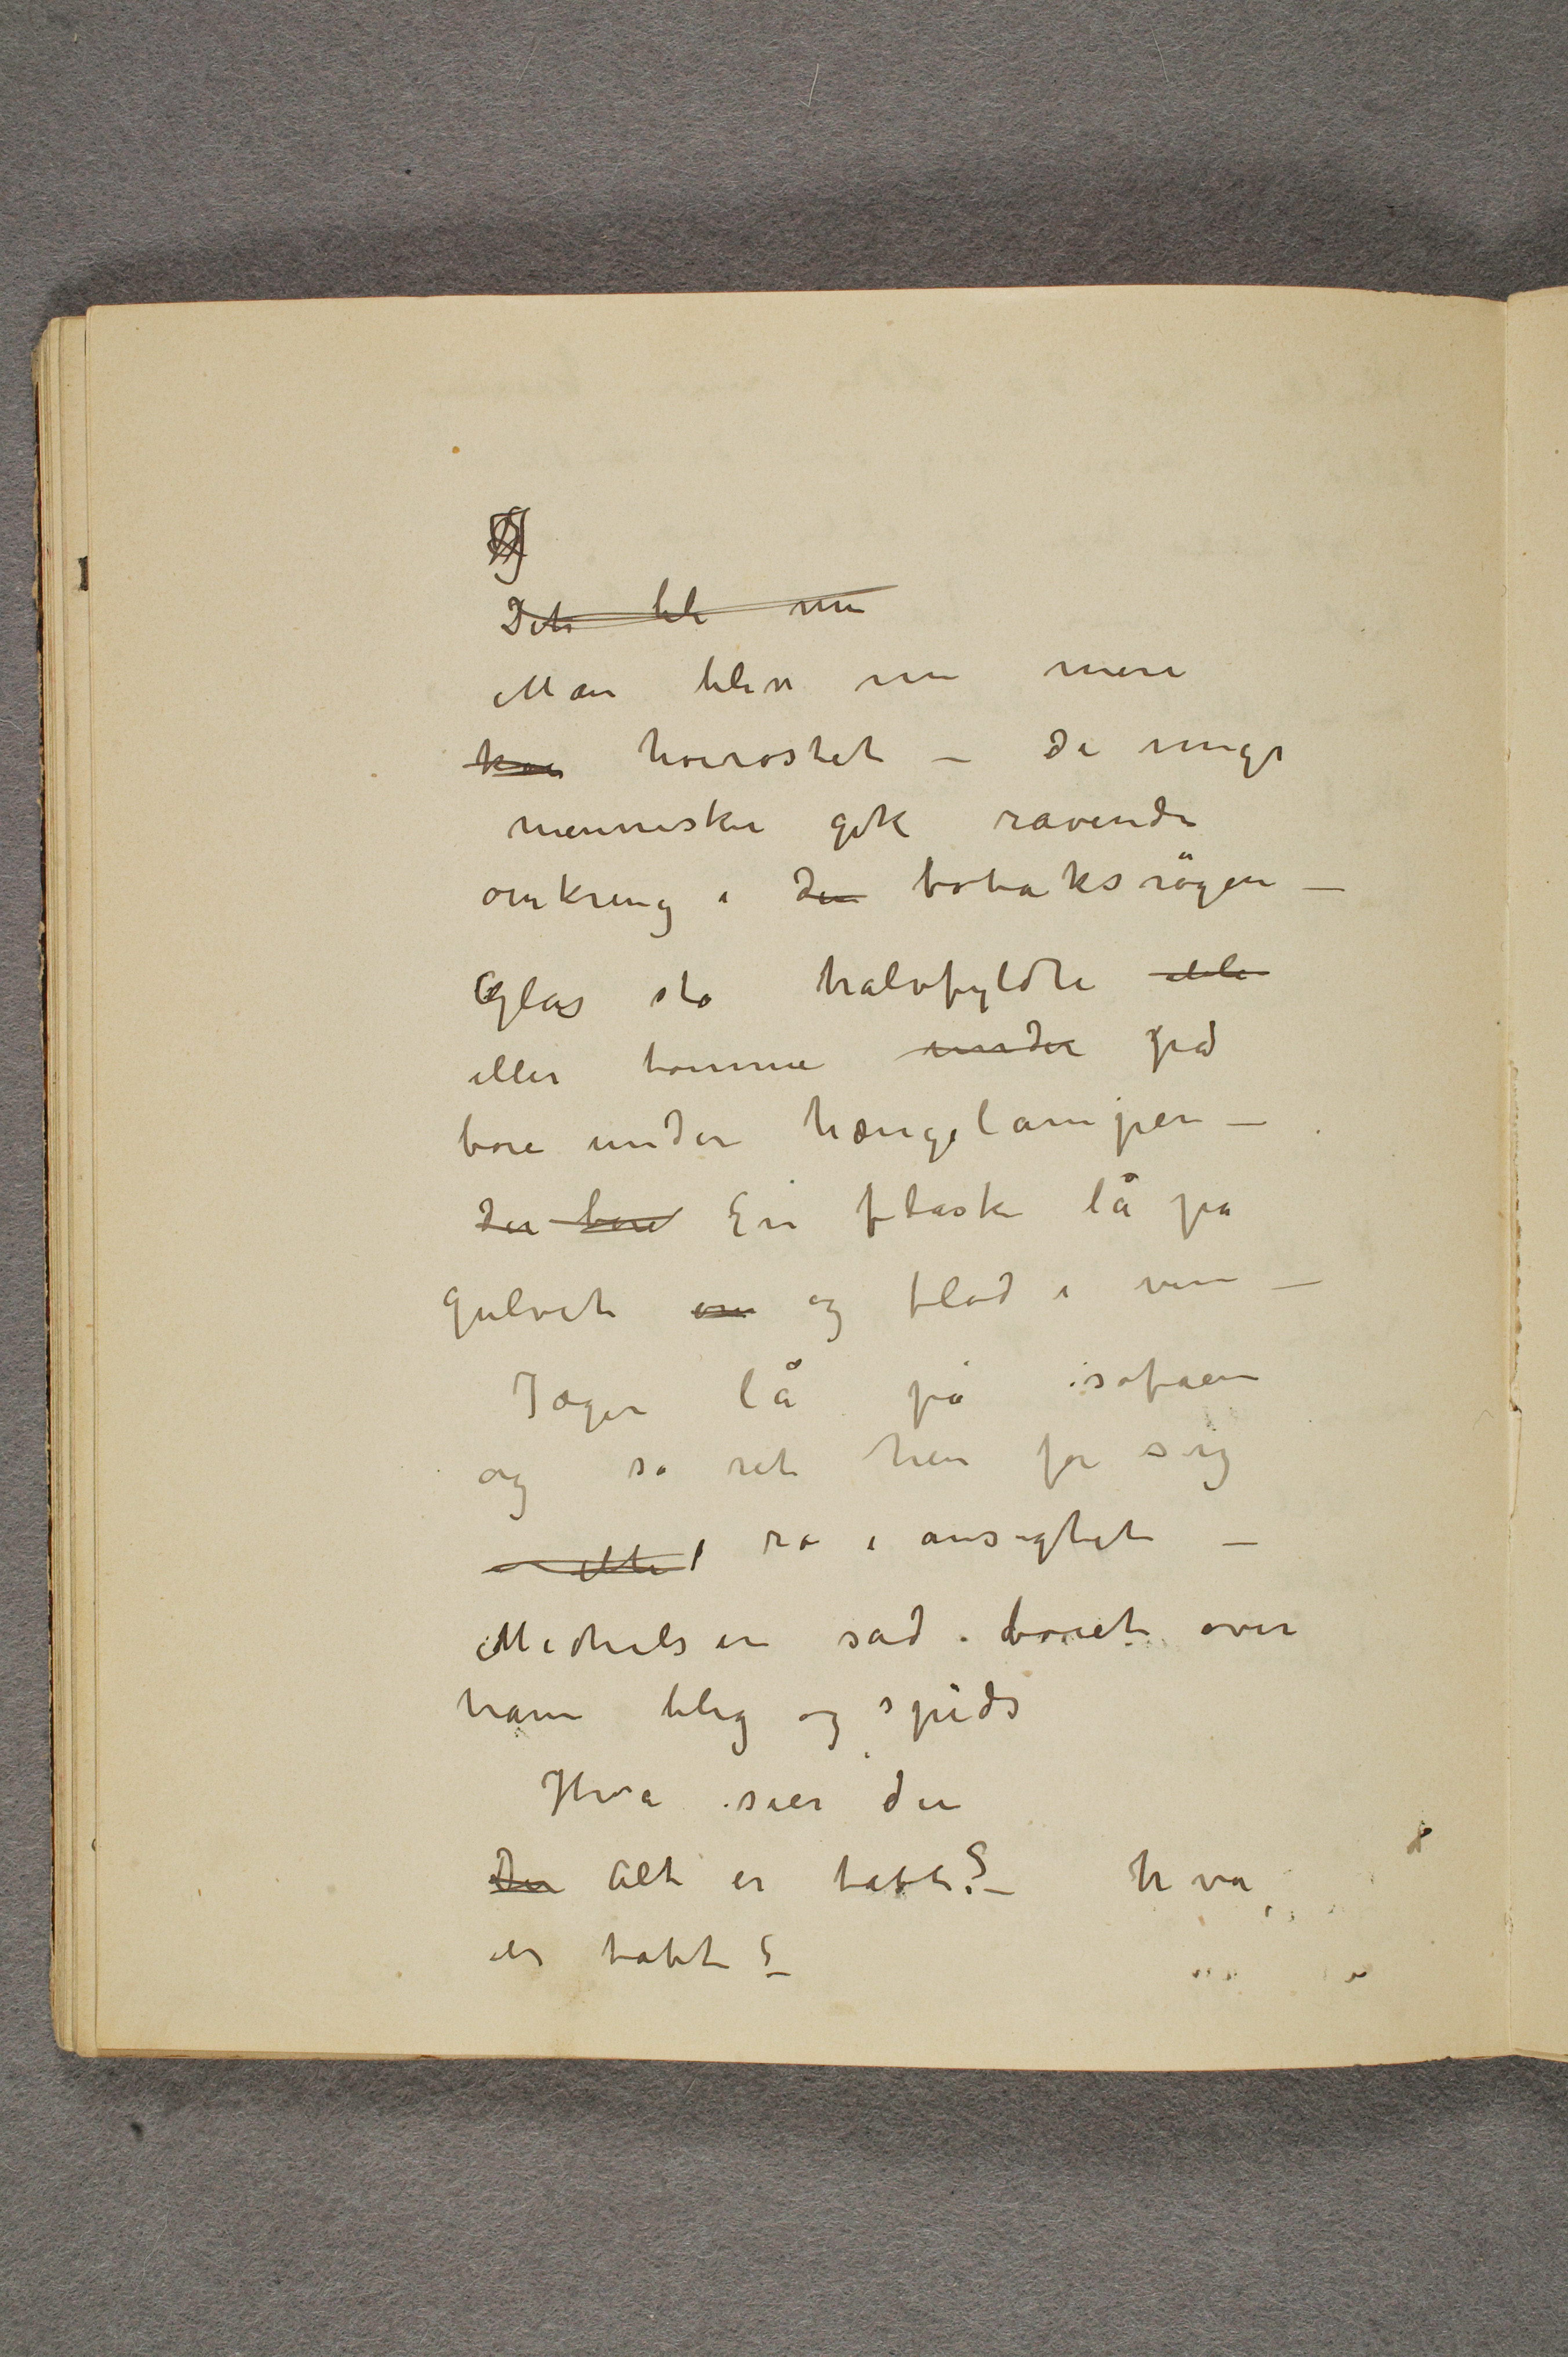 Det bli nu
Man blev nu mere
høirøstet – de unge
mennesker gik ravende
omkring i den tobaksrögen –
Glas sto halvfyldte elle
eller tomme under på
bore under hængelampen –
der bore En flaske lå på
gulvet og flød i vin –
Jæger lå på sofaen
og så ret hen for sig
rø i ansigtet –
Michelsen sad bøiet over
ham bleg og spids
Hva sier du
Du Alt er tabt? – hva
er tabt? –